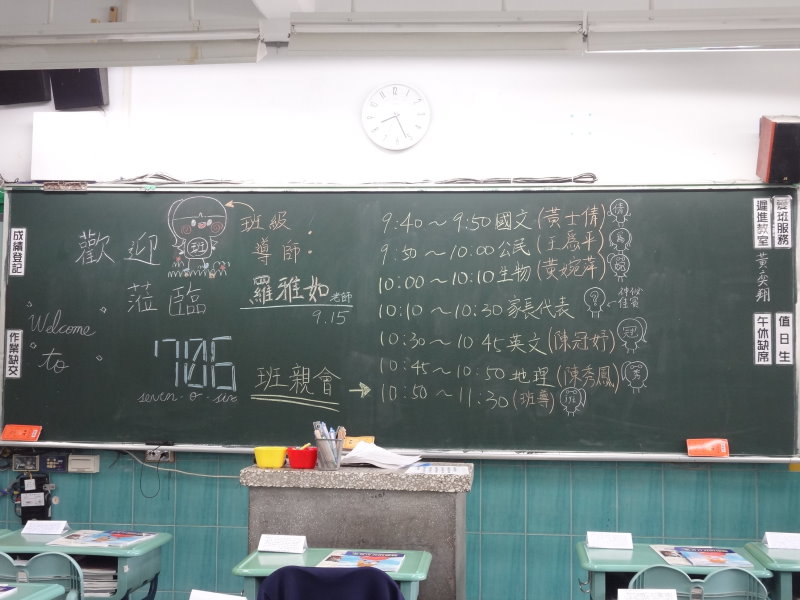 成績登記
作業缺交
歡迎
蒞臨
"Welcome"
"to"
班
班級
導師！
羅雅如老師
9.15
706
seven·o·six
班親會
9:40～9:50國文(黃士倩)倩
9:50～10:00公民(王為平)
10:00～10:10生物(黃婉萍)
10:10～10:30家長代表
10:30～10 45英文(陳冠妤)冠
10:45～10:50地理(陳秀鳳)秀
10:50～11:30(班導)班
愛班服務
遲進教室
黃奕翔
值日生
午休缺席